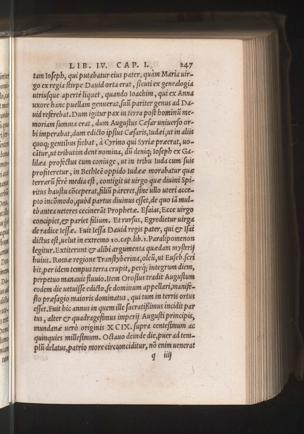 LIB. IV. CAP. I. 247
tam Ioseph, qui putabatur eius pater, quàm Maria uir-
go ex regia stirpe Dauid orta erat, sicuti ex genealogia
utriusque apertè liquet, quando Ioachim, qui ex Anna
uxore hanc puellam genuerat, suũ pariter genus ad Da-
uid referebat. Dum igitur pax in terra post hominũ me-
moriam summa erat, dum Augustus Cæsar uniuerso or-
bi imperabat, dum edicto ipsius Cæsaris, Iudæi, ut in alijs
quoq; gentibus fiebat, à Cyrino qui Syriæ præerat, uo-
cãtur, ut tributim dent nomina, dũ deniq; Ioseph ex Ga-
lilæa profectus cum coniuge, ut in tribu Iuda cum suis
profiteretur, in Bethleē oppido Iudææ morabatur quæ
terrarũ ferè media est, contigit ut uirgo quæ diuini Spi-
ritus haustu cōceperat, filiũ pareret, sine ullo uteri acce-
pto incõmodo, quòd partus diuinus esset, de quo iã mul-
tò antea ueteres cecinerāt Prophetæ. Esaias, Ecce uirgo
concipiet, & pariet filium. Et rursus, Egredietur uirga
de radice Iessæ. Fuit Iessa Dauid regis pater, qui & Isai
dictus est, uelut in extremo 10. cap. lib. 1. Paralipomenon
legitur. Extiterunt & alibi argumenta quædam mysterij
huius. Romæ regione Transtyberina, oleũ, ut Euseb. scri
bit, per idem tempus terra erupit, perq; integrum diem,
perpetuo manauit fluuio. Item Orosius tradit Augustum
eodem die uetuisse edicto, se dominum appellari, manife-
sto præsagio maioris dominatus, qui tum in terris ortus
esset. Fuit hic annus in quem ille sacratissimus incidit par
tus, alter & quadragesimus imperij Augusti principis,
mundanæ uerò originis XCIX. supra centesimum ac
quinquies millesimum. Octauo deinde die, puer ad tem-
plũ delatus, patrio more circũciditur, nō enim uenerat
q iiij